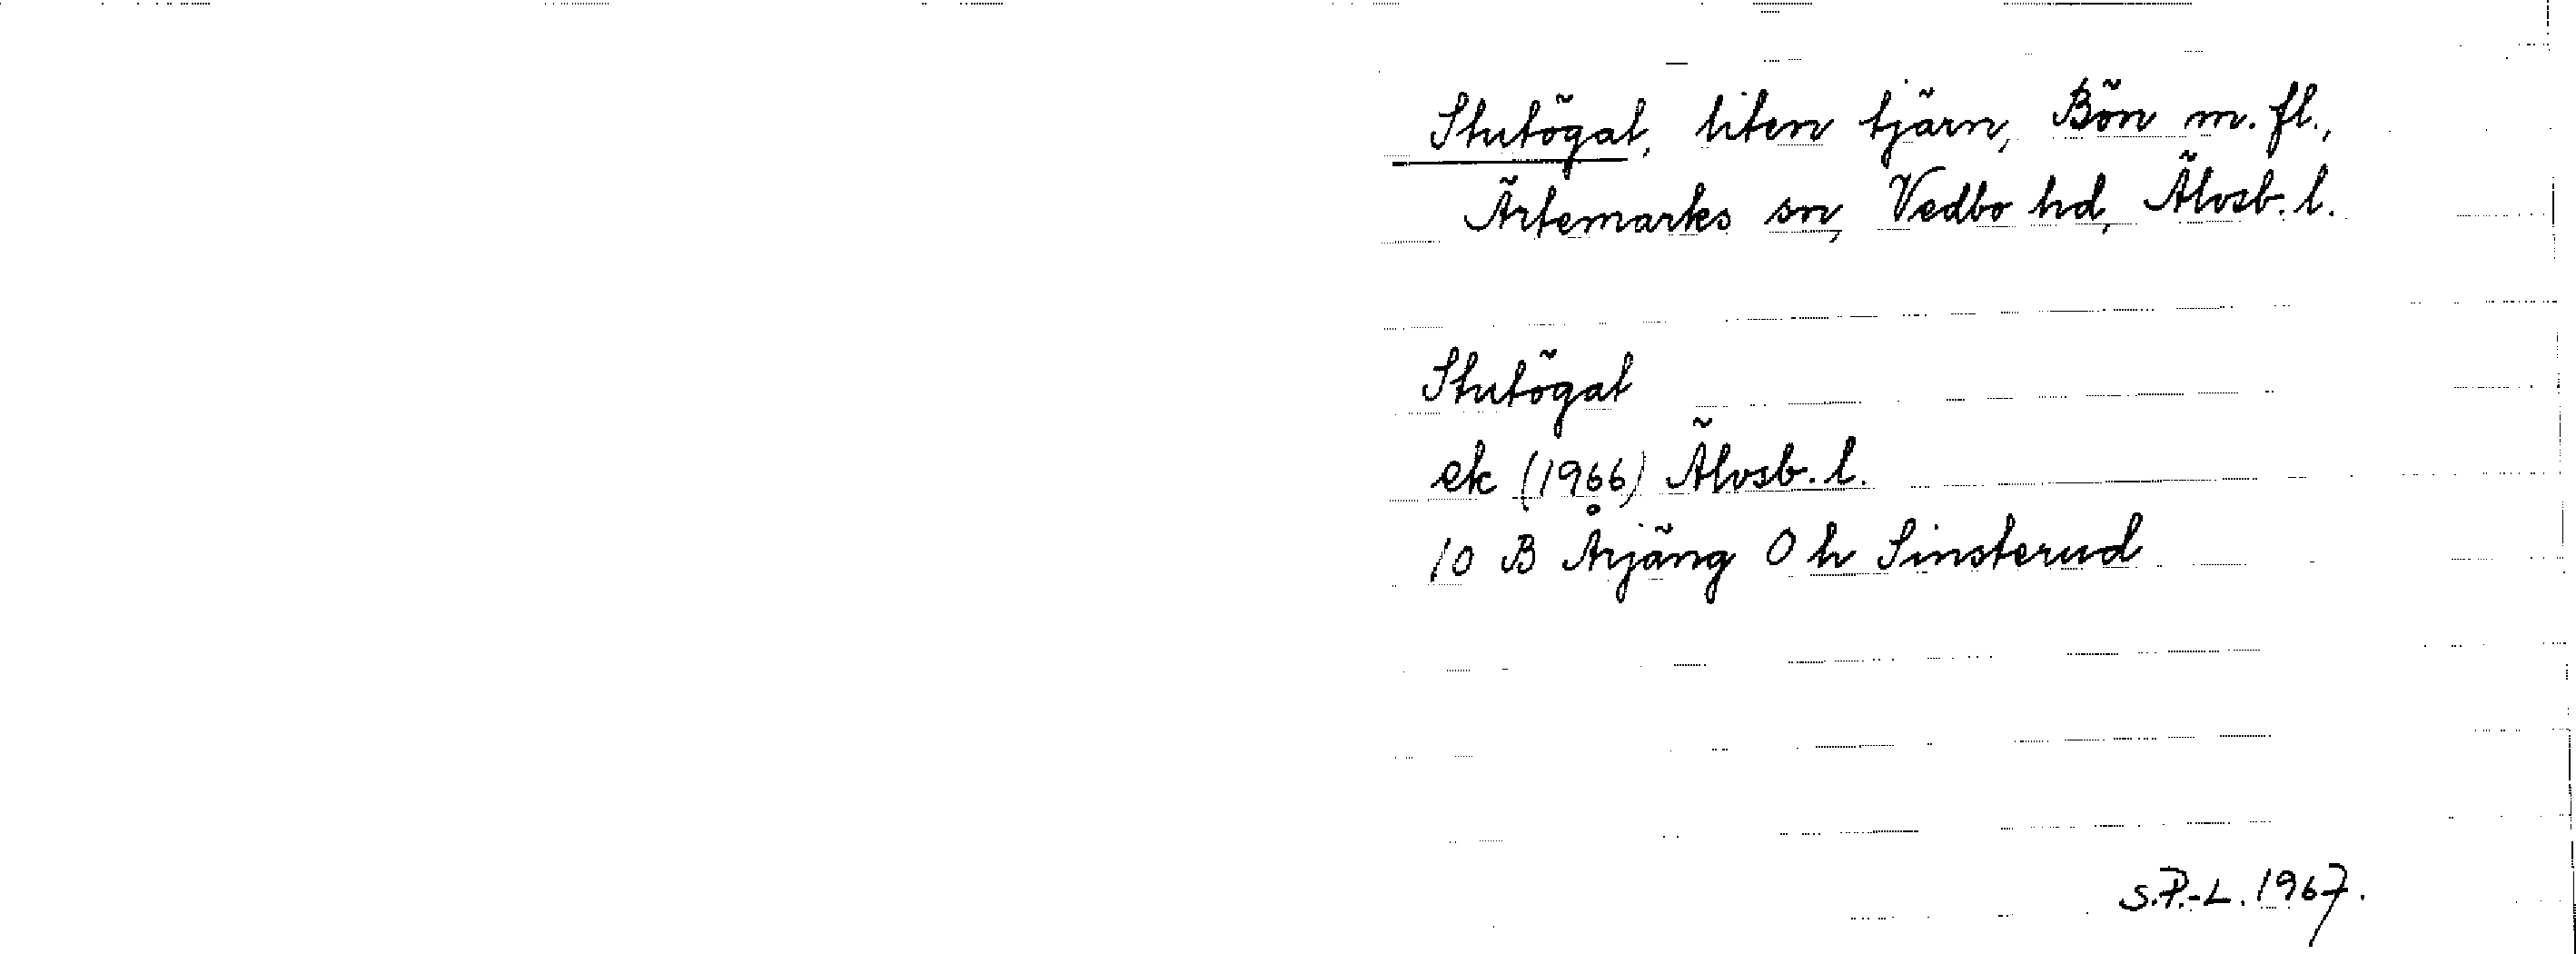 Stutögat, liten tjärn, Bön m. fl.,
Ärtemarks sn, Vedbo hd, Älvsb. l.
Stutögat
ek (1966) Älvsb. l.
10 B Årjäng 0 h Sinsterud
S.P.-L. 1967.